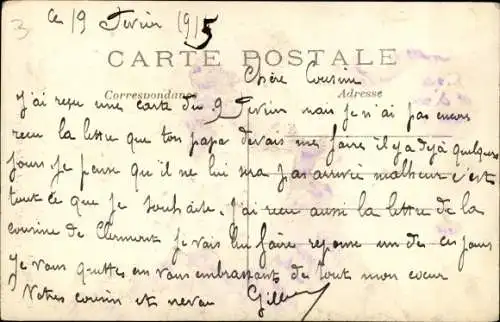 ce 19 Fevrier 1915
CARTE POSTALE
Correspondance
Adresse
Chère Cousine
J'ai reçu une carte du 9 Fevrier mais je n'ai pas encore
reçu la lettre que ton papa devais me faire il y a dejà quelques
jours je pense qu'il ne lui sera pas arrivé malheur c'est
tout ce que je souhaite. J'ai reçu aussi la lettre de la
cousine de Clermont je vais lui faire reponse un de ces jours
Je vous quittes en vous embrassants de tout mon coeur
Votres cousin et neveu